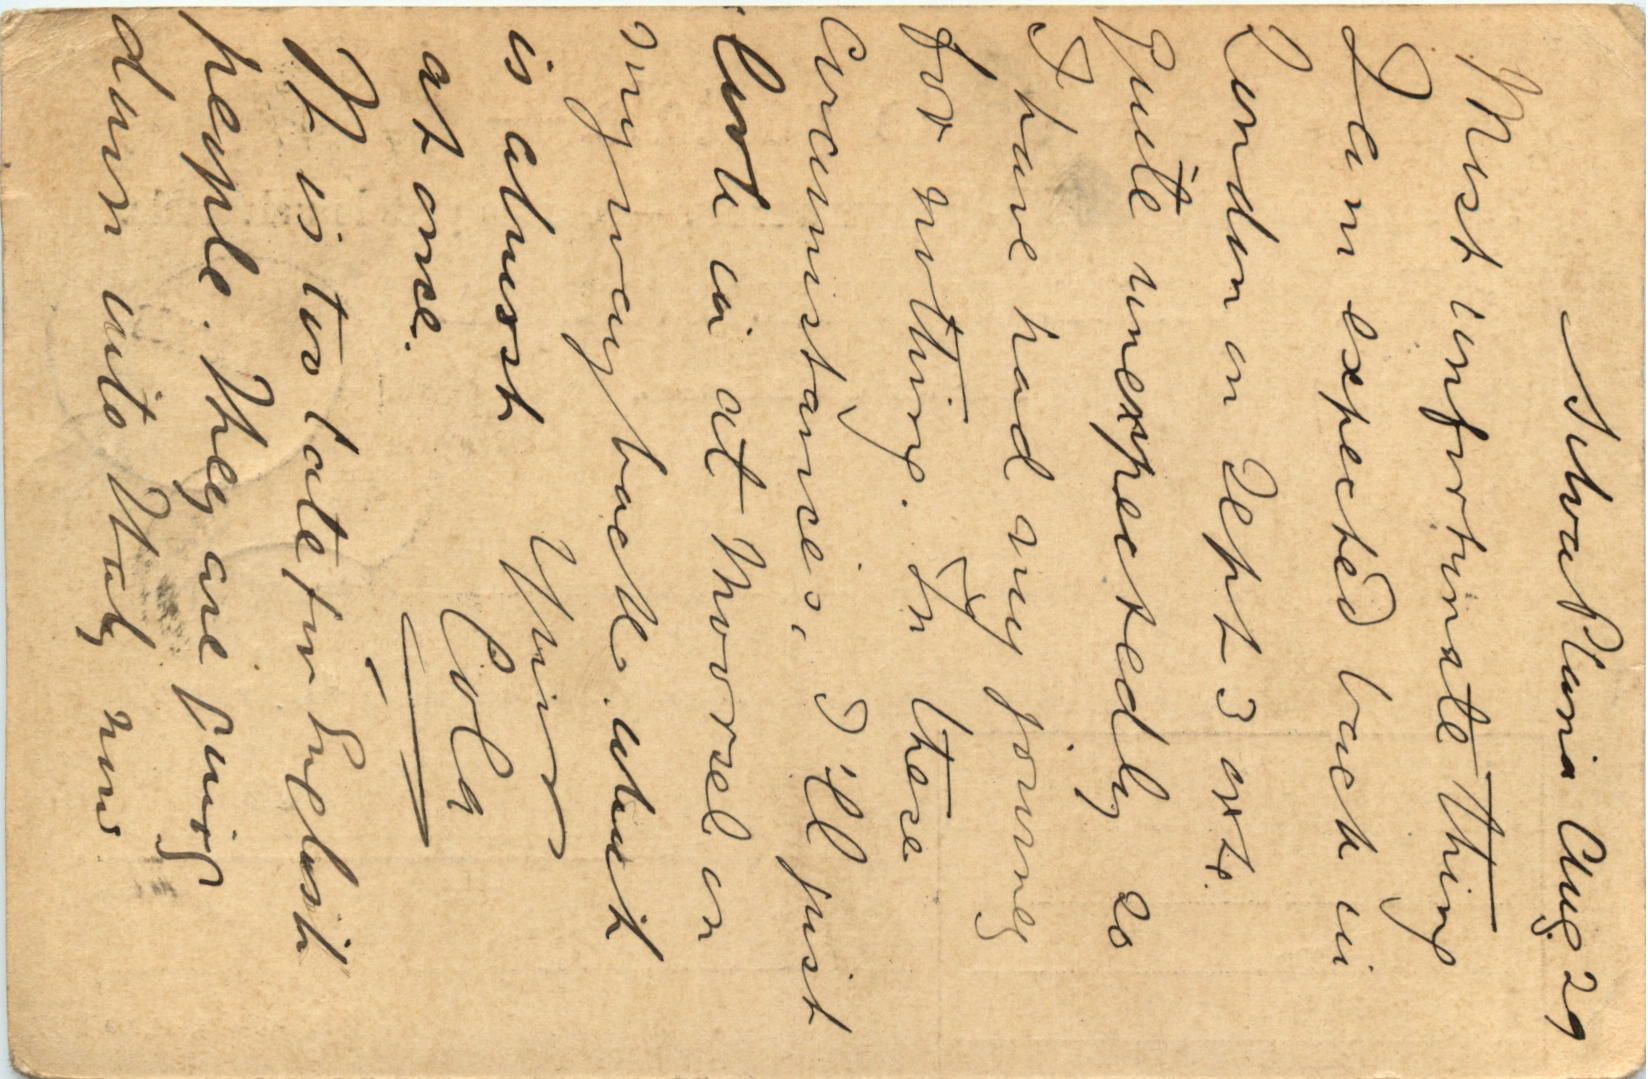 Silva Plana Aug 29
Most unfortunate thing
I am expected back in
London on Sept 3 or 4.
Quite unexpectedly so
I have had my journey
for nothing. In these
circumstances, I'll just
look in at Thoorsel on
my way back. which
is almost
at once.
Yours
Cola
It is too late for English
people. They are going
down into Italy now